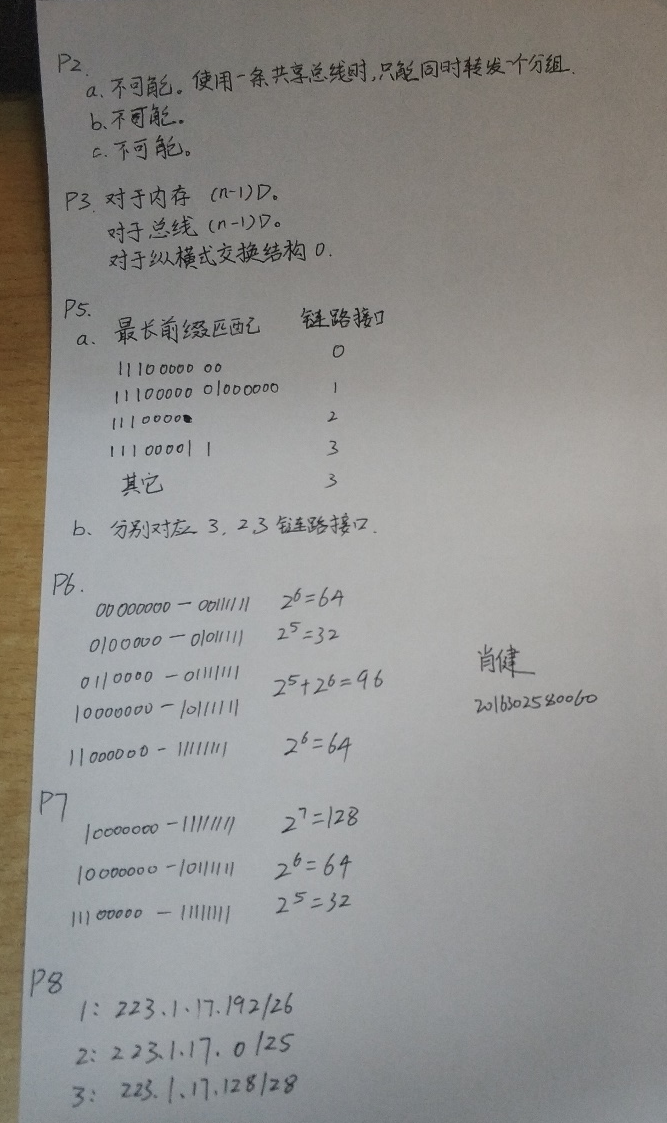 P2.
a. 不可能。使用一条共享总线时,只能同时转发一个分组.
b. 不可能。
c. 不可能。
P3. 对于内存 (n-1)D。
对于总线 (n-1)D。
对于纵横式交换结构 0.
P5.
a. 最长前缀匹配 链路接口
11100000 00 0
11100000 01000000 1
1110000 2
11100001 1 3
其它 3
b. 分别对应 3, 2, 3 链路接口.
P6.
00000000 - 00111111 2^6=64
0100000 - 01011111 2^5=32
0110000 - 01111111
2^5+2^6=96
10000000 - 10111111
11000000 - 11111111 2^6=64
肖健
2016302580060
P7
10000000 - 11111111 2^7=128
10000000 - 10111111 2^6=64
11100000 - 11111111 2^5=32
P8
1: 223.1.17.192/26
2: 223.1.17.0/25
3: 223.1.17.128/28